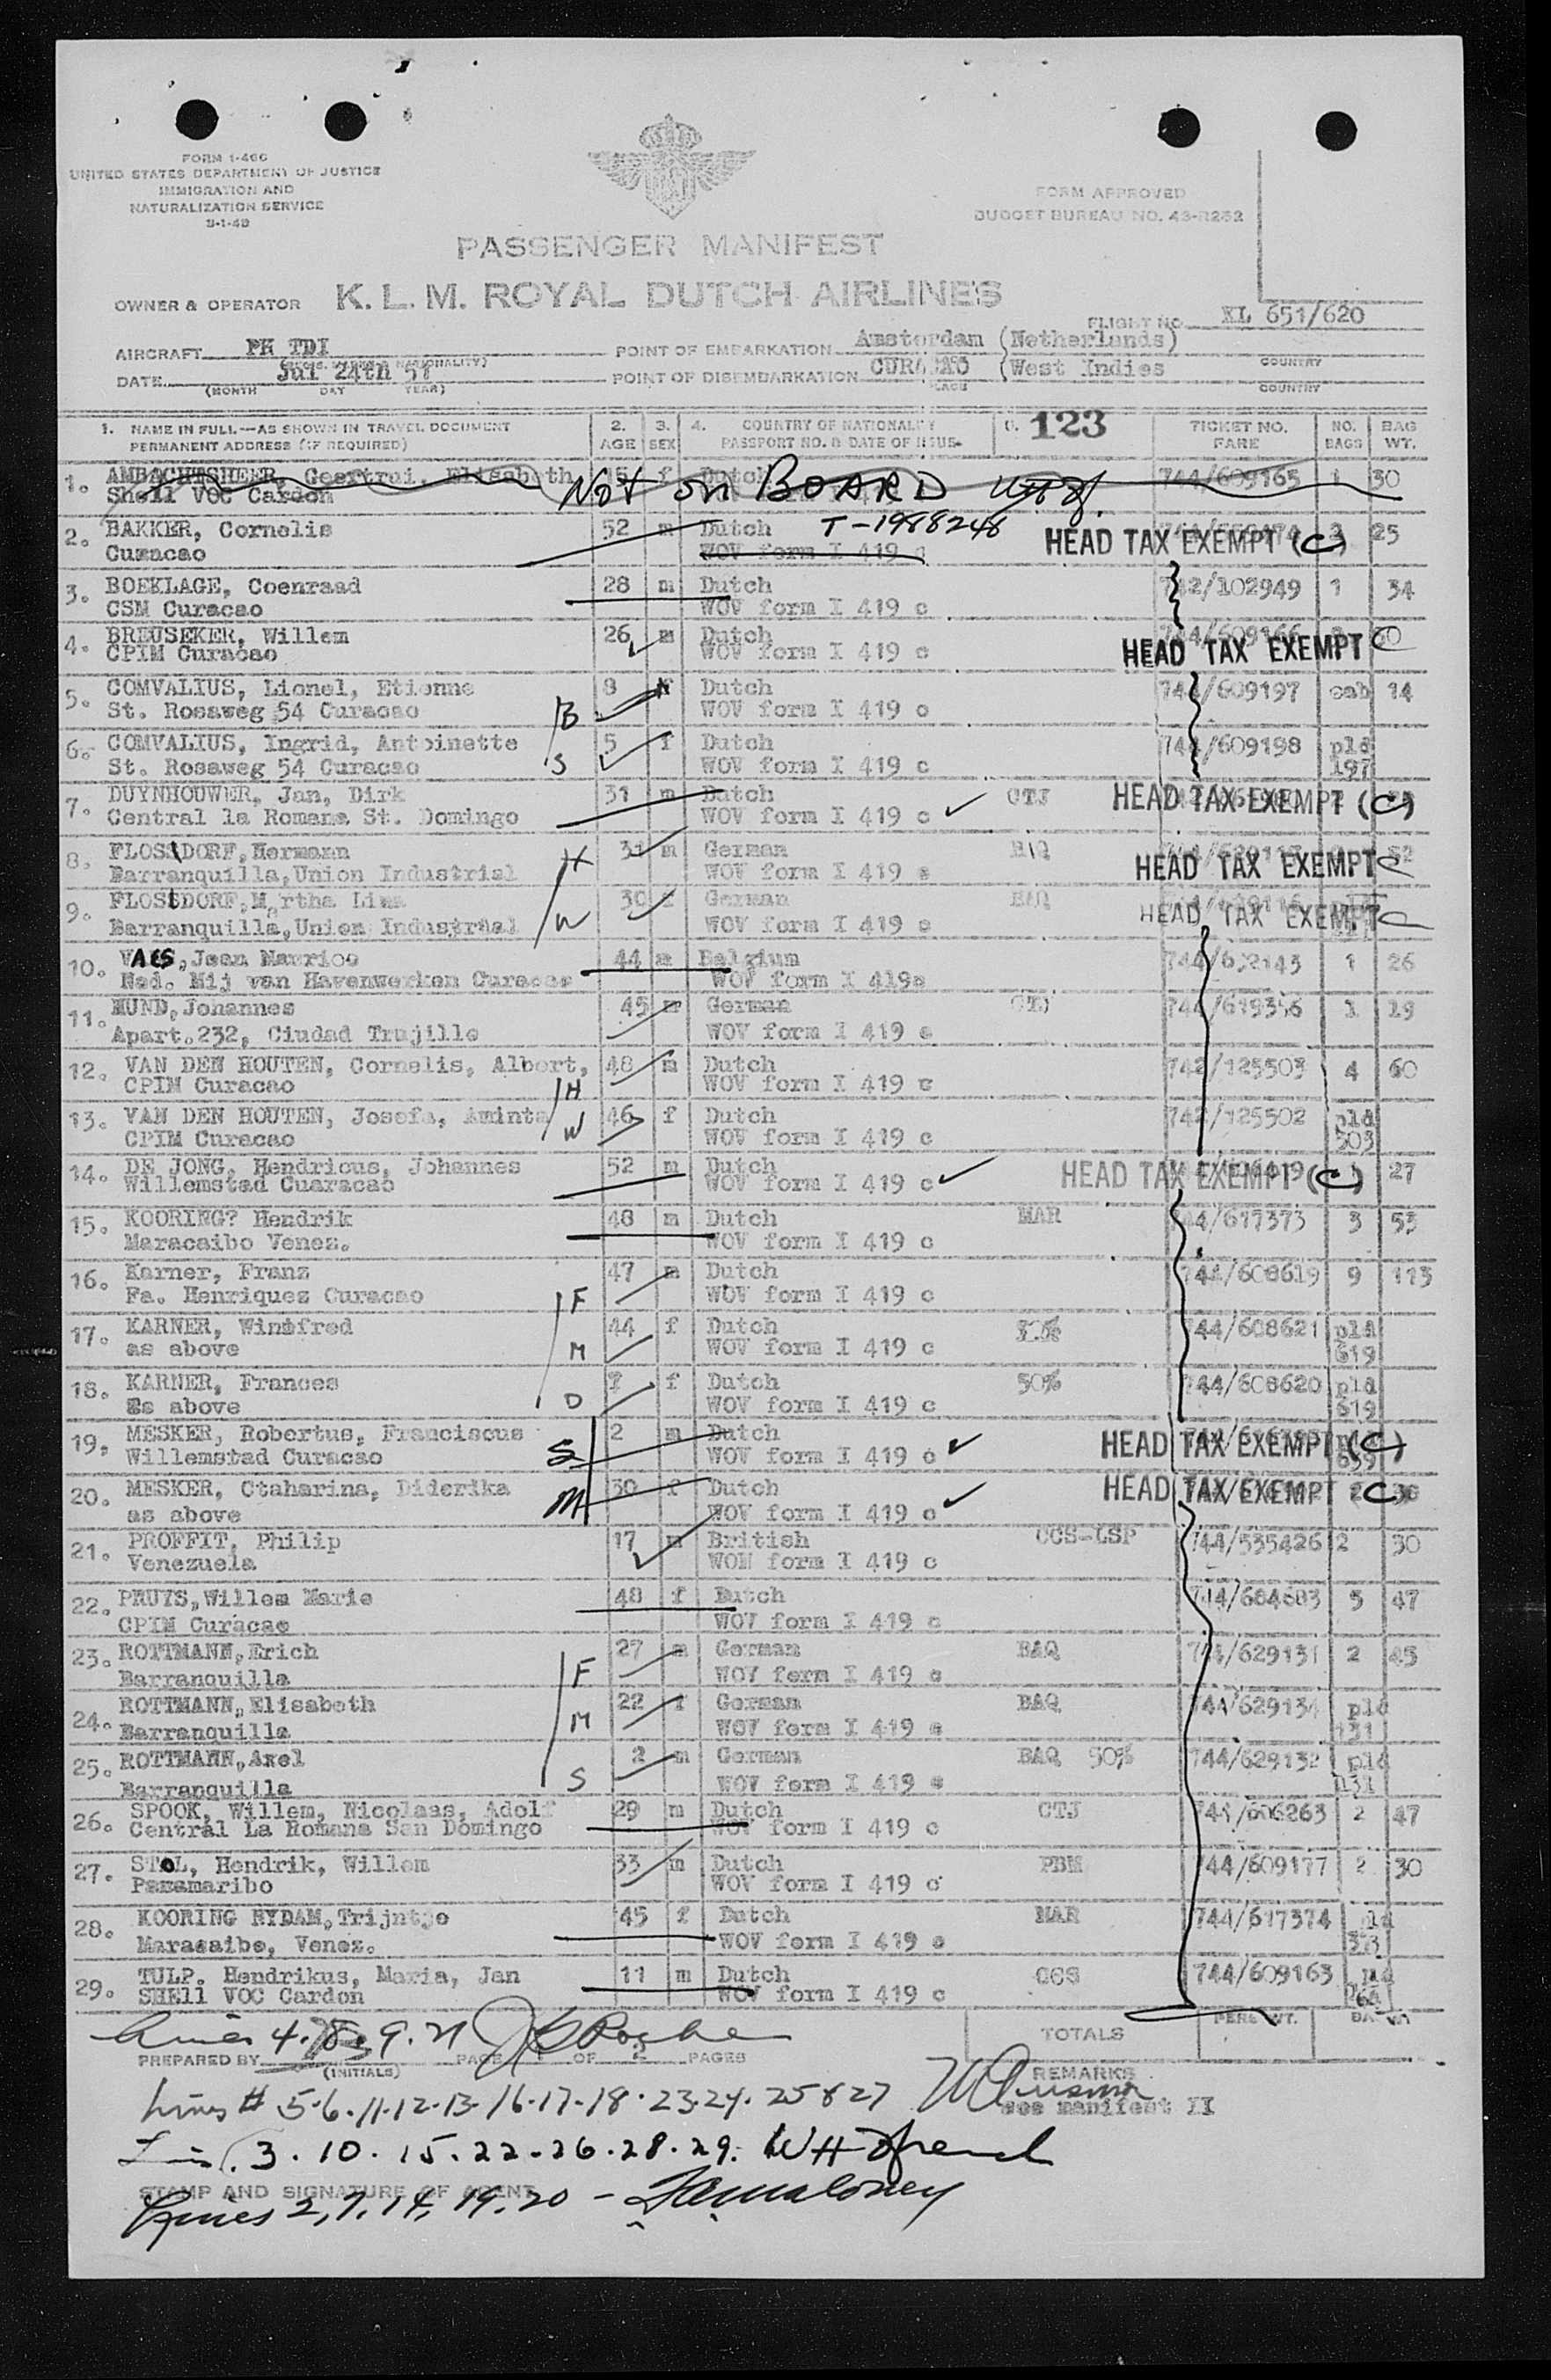 FORM I-466
UNITED STATES DEPARTMENT OF JUSTICE
IMMIGRATION AND
NATURALIZATION SERVICE
FORM APPROVED
BUDGET BUREAU NO. 43-R252
PASSENGER MANIFEST
OWNER & OPERATOR K. L. M. ROYAL DUTCH AIRLINES
FLIGHT NO. KL 651/620
AIRCRAFT PH TDI POINT OF EMBARKATION Amsterdam (Netherlands) COUNTRY
DATE Jul 24th 51 POINT OF DISEMBARKATION CURACAO (West Indies COUNTRY
(MONTH DAY YEAR) PLACE
1. NAME IN FULL—AS SHOWN IN TRAVEL DOCUMENT 2. 3. 4. COUNTRY OF NATIONALITY 123 TICKET NO. NO. BAG
PERMANENT ADDRESS (IF REQUIRED) AGE SEX PASSPORT NO. & DATE OF ISSUE FARE BAGS WT.
1. AMBACHTSHEER, Geertrui, Elisabeth 45 f Dutch 744/609165 1 30
Shell VOC Cardon Not on BOARD
2. BAKKER, Cornelis 52 m Dutch T-1988248 HEAD TAX EXEMPT (C) 25
Curacao WOV form I 419 c
3. BOEKLAGE, Coenraad 28 m Dutch 742/102949 1 34
CSM Curacao WOV form I 419 c
4. BREUSEKER, Willem 26 m Dutch 744/609166
CPIM Curacao WOV form I 419 c HEAD TAX EXEMPT C
5. COMVALIUS, Lionel, Etienne 8 Dutch 744/609197 cab 14
St. Rosaweg 54 Curacao B WOV form I 419 c
6. COMVALIUS, Ingrid, Antoinette 5 f Dutch 744/609198 pld
St. Rosaweg 54 Curacao S WOV form I 419 c 197
7. DUYNHOUWER, Jan, Dirk 31 m Dutch CTJ HEAD TAX EXEMPT (C)
Central la Romana St. Domingo WOV form I 419 c
8. FLOSSDORF, Hermann H 31 m German BAQ
Barranquilla, Union Industrial WOV form I 419 c HEAD TAX EXEMPT C
9. FLOSSDORF, Martha 30 f German BAQ
Barranquilla, Union Industrial W WOV form I 419 c HEAD TAX EXEMPT C
10. VAES, Jean Maurice 44 m Belgium 744/632143 1 26
Ned. Mij van Havenwerken Curacao WOV form I 419c
11. HUND, Johannes 45 m German CTJ 744/619356 1 19
Apart. 232, Ciudad Trujillo WOV form I 419 c
12. VAN DEN HOUTEN, Cornelis, Albert, 48 m Dutch 742/125503 4 60
CPIM Curacao H WOV form I 419 c
13. VAN DEN HOUTEN, Josefa, Aminta 46 f Dutch 742/125502 pld
CPIM Curacao W WOV form I 419 c 503
14. DE JONG, Hendricus, Johannes 52 m Dutch HEAD TAX EXEMPT (C) 27
Willemstad Cuaracao WOV form I 419 c
15. KOORING? Hendrik 48 m Dutch MAR 744/617373 3 53
Maracaibo Venez. WOV form I 419 c
16. Karner, Franz 47 m Dutch 744/608619 9 113
Fa. Henriquez Curacao F WOV form I 419 c
17. KARNER, Winifred 44 f Dutch 744/608621 pld
as above M WOV form I 419 c 619
18. KARNER, Frances 7 f Dutch 50% 744/608620 pld
as above D WOV form I 419 c 619
19. MESKER, Robertus, Franciscus 2 m Dutch HEAD TAX EXEMPT (C)
Willemstad Curacao S WOV form I 419 c
20. MESKER, Ctaharina, Diderika 30 f Dutch HEAD TAX EXEMPT C
as above M WOV form I 419 c
21. PROFFIT, Philip 17 m British CCS-LSP 744/535426 2 30
Venezuela WOM form I 419 c
22. PRUYS, Willem Marie 48 f Dutch 744/604603 5 47
CPIM Curacao WOV form I 419 c
23. ROTTMANN, Erich 27 m German BAQ 744/629131 2 45
Barranquilla F WOV form I 419 c
24. ROTTMANN, Elisabeth 22 f German BAQ 744/629134 pld
Barranquilla M WOV form I 419 c 131
25. ROTTMANN, Axel 2 m German BAQ 50% 744/629132 pld
Barranquilla S WOV form I 419 c 131
26. SPOOK, Willem, Nicolaas, Adolf 29 m Dutch CTJ 744/606263 2 47
Central La Romana San Domingo WOV form I 419 c
27. STOL, Hendrik, Willem 33 m Dutch PBM 744/609177 2 30
Paramaribo WOV form I 419 c
28. KOORING RYDAM, Trijntje 45 f Dutch MAR 744/617374 pld
Maracaibo, Venez. WOV form I 419 c 373
29. TULP. Hendrikus, Maria, Jan 11 m Dutch CCS 744/609163 pld
SHEll VOC Cardon WOV form I 419 c
Lines 4. 8. 9. 21
TOTALS
PREPARED BY (INITIALS) PAGE 1 OF 2 PAGES
REMARKS
see manifest II
Lines # 5-6-11-12-13-16-17-18-23-24-25 & 27
3. 10. 15. 22-26.28.29.
STAMP AND SIGNATURE OF AGENT
Lines 2, 7, 14, 19, 20 -